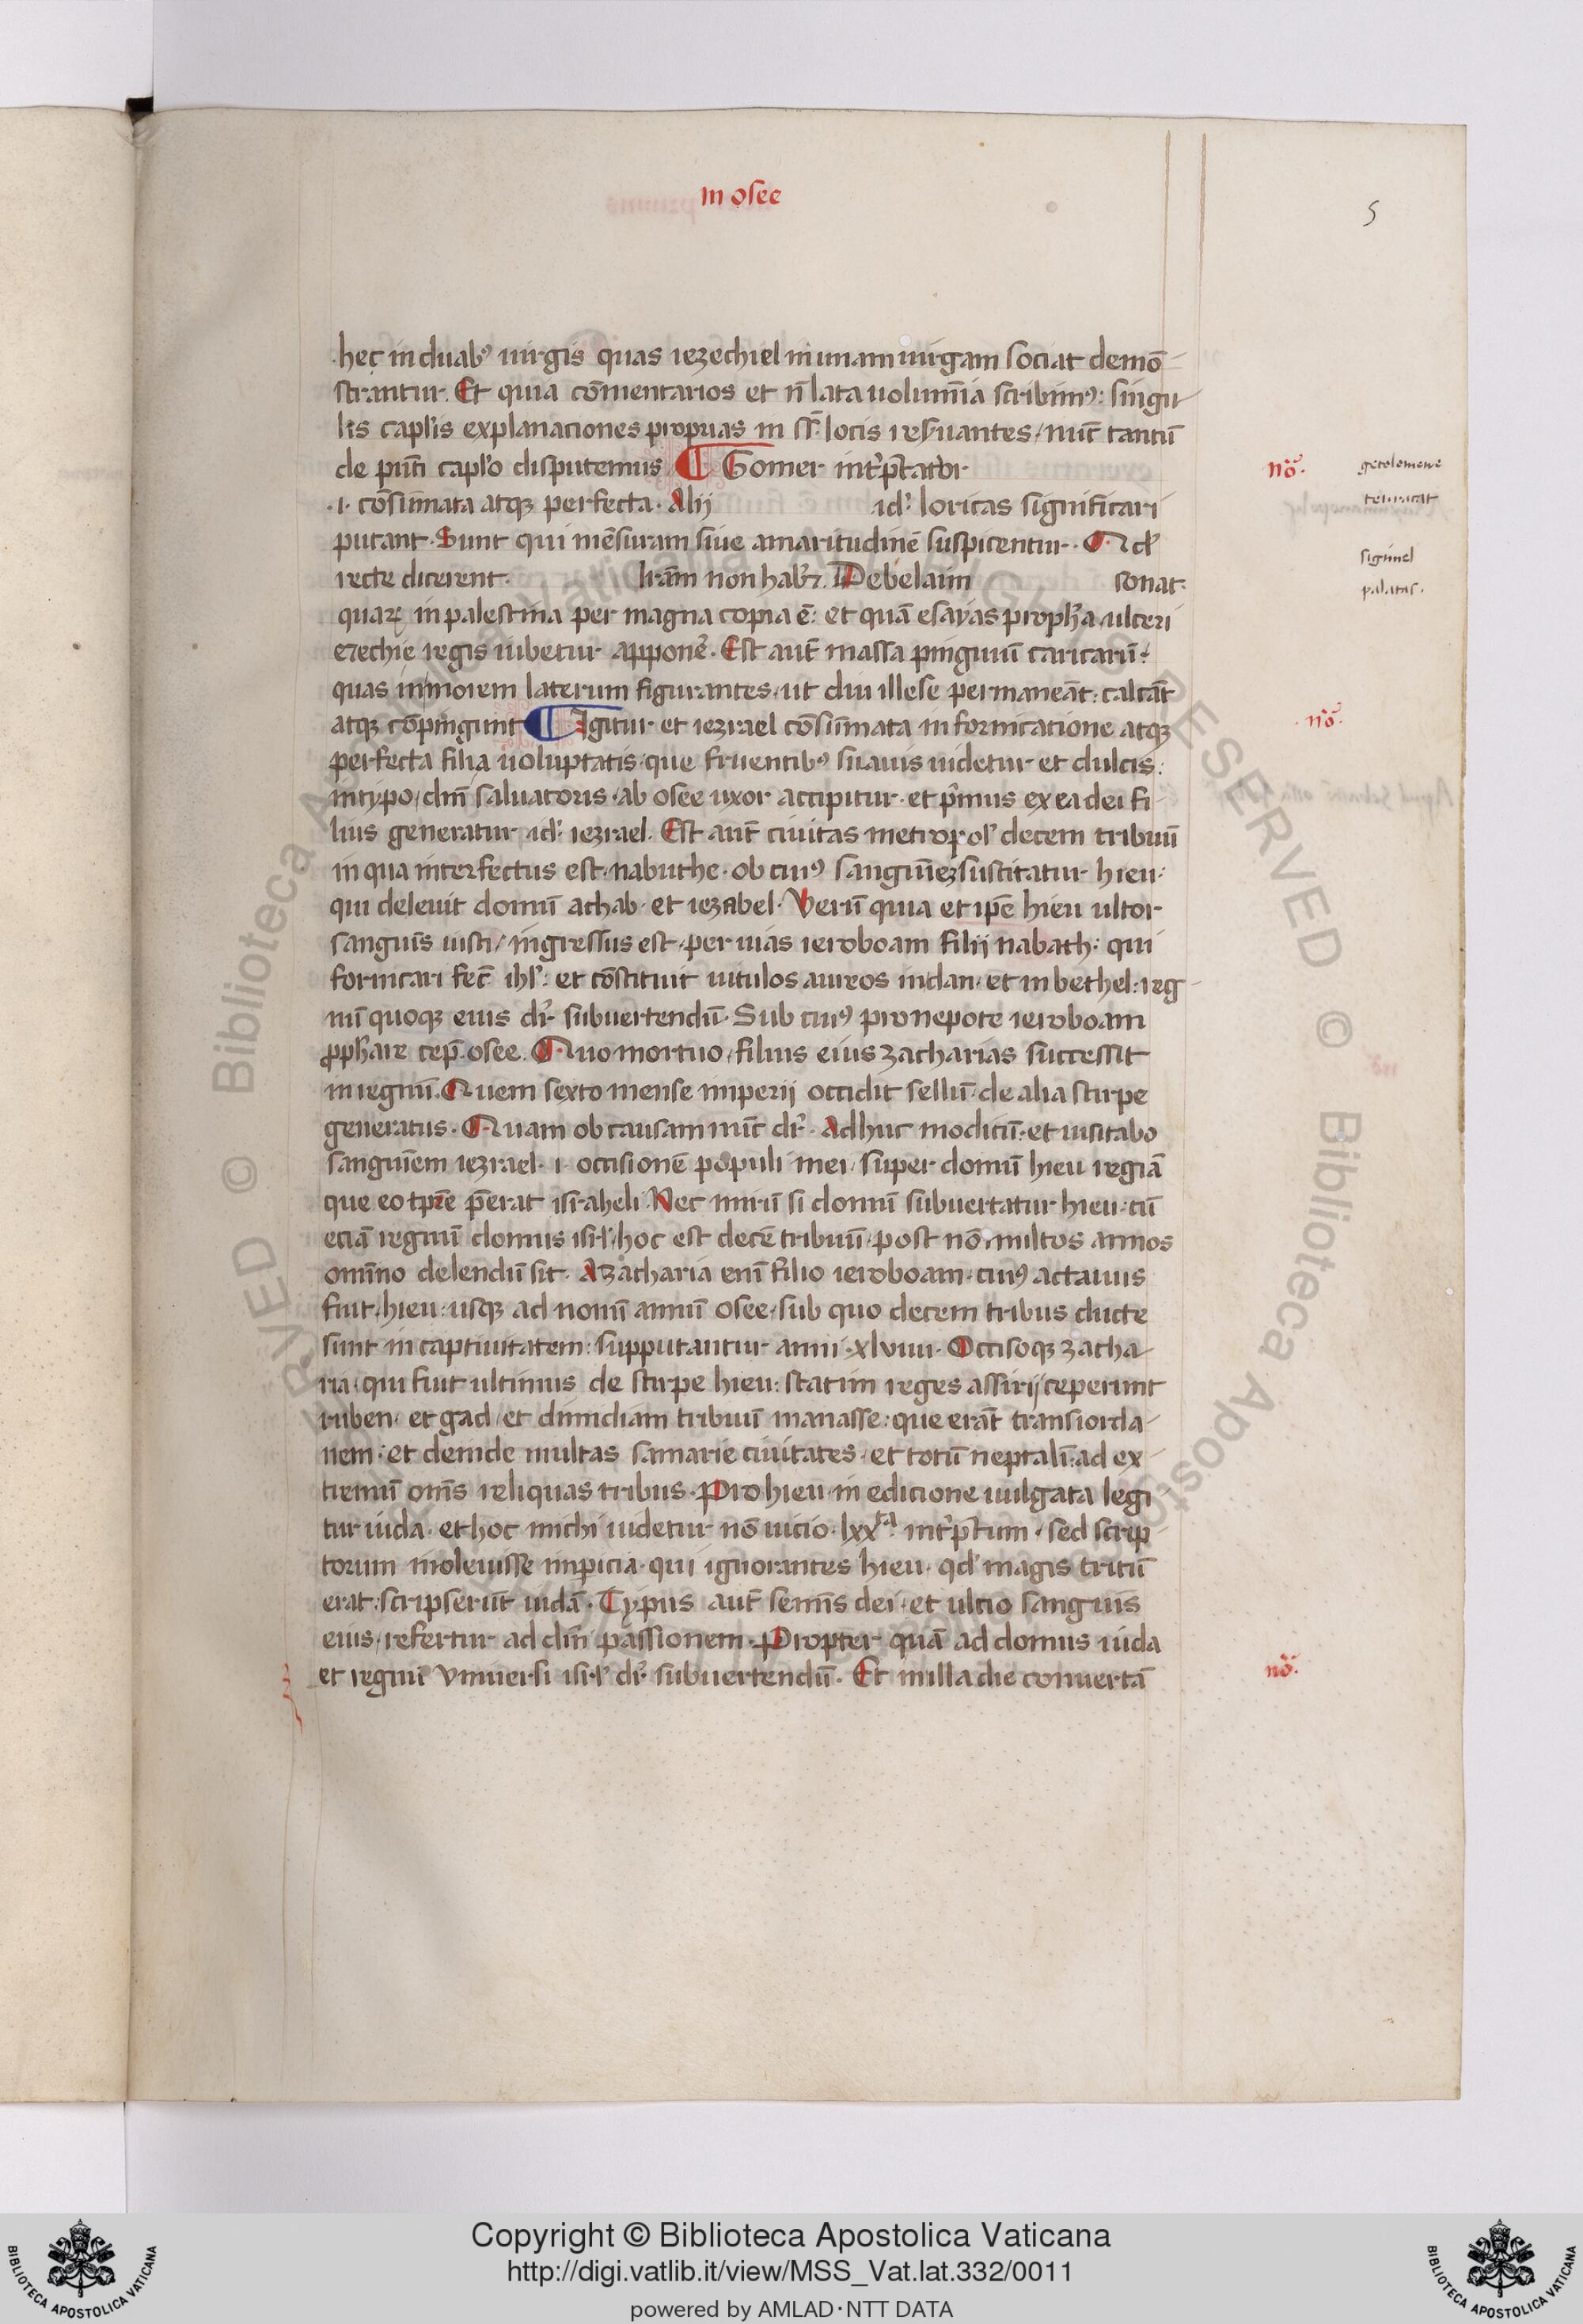 in osee
5
hec in duab⁹ uirgis quas iezechiel in unam uirgam sociat demō
strantur. Et quia cōmentarios et nō lata uolumīa scribim⁹: singu
lis capl'is explanaciones proprias in ss̄. locis res̄uantes, nūc tantū
de p̄nti capl'o disputemus Gomer int̄p̄tatur
.i. cōsūmata atqꝫ perfecta. Alij id' loricas significari
putant. Sunt qui mēsuram siue amaritudinē suspicentur. Qd'
recte dicerent. lr̄am non hab'et. Debelaim sonat.
quaꝝ in palestina per magna copia ē: et quā esayas proph'a ulceri
ezechie regis iubetur appon'e. Est aut̄ massa pinguiū caricarū:
quas in morem laterum figurantes, ut diu illese permaneāt: calcāt
atqꝫ cōpingunt Igitur et iezrael cōsūmata in fornicatione atqꝫ
perfecta filia uoluptatis, que fruentib⁹ suauis uidetur et dulcis:
in typo dn̄i saluatoris. ab osee uxor accipitur. et p̄mus ex ea dei fi
lius generatur id' iezrael. Est aut̄ ciuitas metropol' decem tribuū
in qua interfectus est nabuthe. ob cui⁹ sanguīeꝫ suscitatur hieu:
qui deleuit domū achab. et iezabel. Verū quia et ip̄e hieu ultor
sanguīs iusti, ingressus est per uias ieroboam filij nabath: qui
fornicari fec̄ ihl': et cōstituit uitulos aureos in dan. et in bethel: reg
nū quoqꝫ eius dr̄ subuertendū. Sub cui⁹ pronepote ieroboam
pph'are cep̄ osee. Quo mortuo, filius eius zacharias successit
in regnū. Quem sexto mense imperij occidit sellū de alia stirpe
generatus. Quam ob causam nūc dr̄. Adhuc modicū: et uisitabo
sanguīem iezrael. i. occisionē populi mei super domū hieu regiā
que eo tp̄re p̄erat israheli. Nec mirū si domū subuertatur hieu: cū
eciā regnū domus isrl' hoc est decē tribuū, post nō multos annos
omīno delendū sit. A zacharia enī filio ieroboam. cui⁹ actauus
fuit hieu: usqꝫ ad nonū annū osee, sub quo decem tribus ducte
sunt in captiuitatem: supputantur anni xlviiii. Occisoqꝫ zacha
ria, qui fuit ultimus de stirpe hieu: statim reges assirij ceperunt
ruben. et gad, et dimidiam tribuū manasse: que erāt transiorda
nem: et deinde multas samarie ciuitates, et totū neptalī: ad ex
tremū om̄s reliquas tribus. Pro hieu in edicione uulgata legi
tur iuda. et hoc michi uidetur nō uicio. lxxᵗᵃ. int̄p̄tum, sed scrip
torum inoleuisse imp̄icia. qui ignorantes hieu. qd' magis tritū
erat: scripserūt iudā. Typus aut̄ semīs dei, et ulcio sanguīs
eius, refertur ad dn̄i passionem. Propter quā ad domus iuda
et regnū vniuersi isrl' dr̄ subuertendū. Et in illa die conuertā
nō.
getolomene
nō.
nō.
palatas.
Copyright © Biblioteca Apostolica Vaticana
http://digi.vatlib.it/view/MSS_Vat.lat.332/0011
powered by AMLAD·NTT DATA
BIBLIOTECA APOSTOLICA VATICANA
BIBLIOTECA APOSTOLICA VATICANA